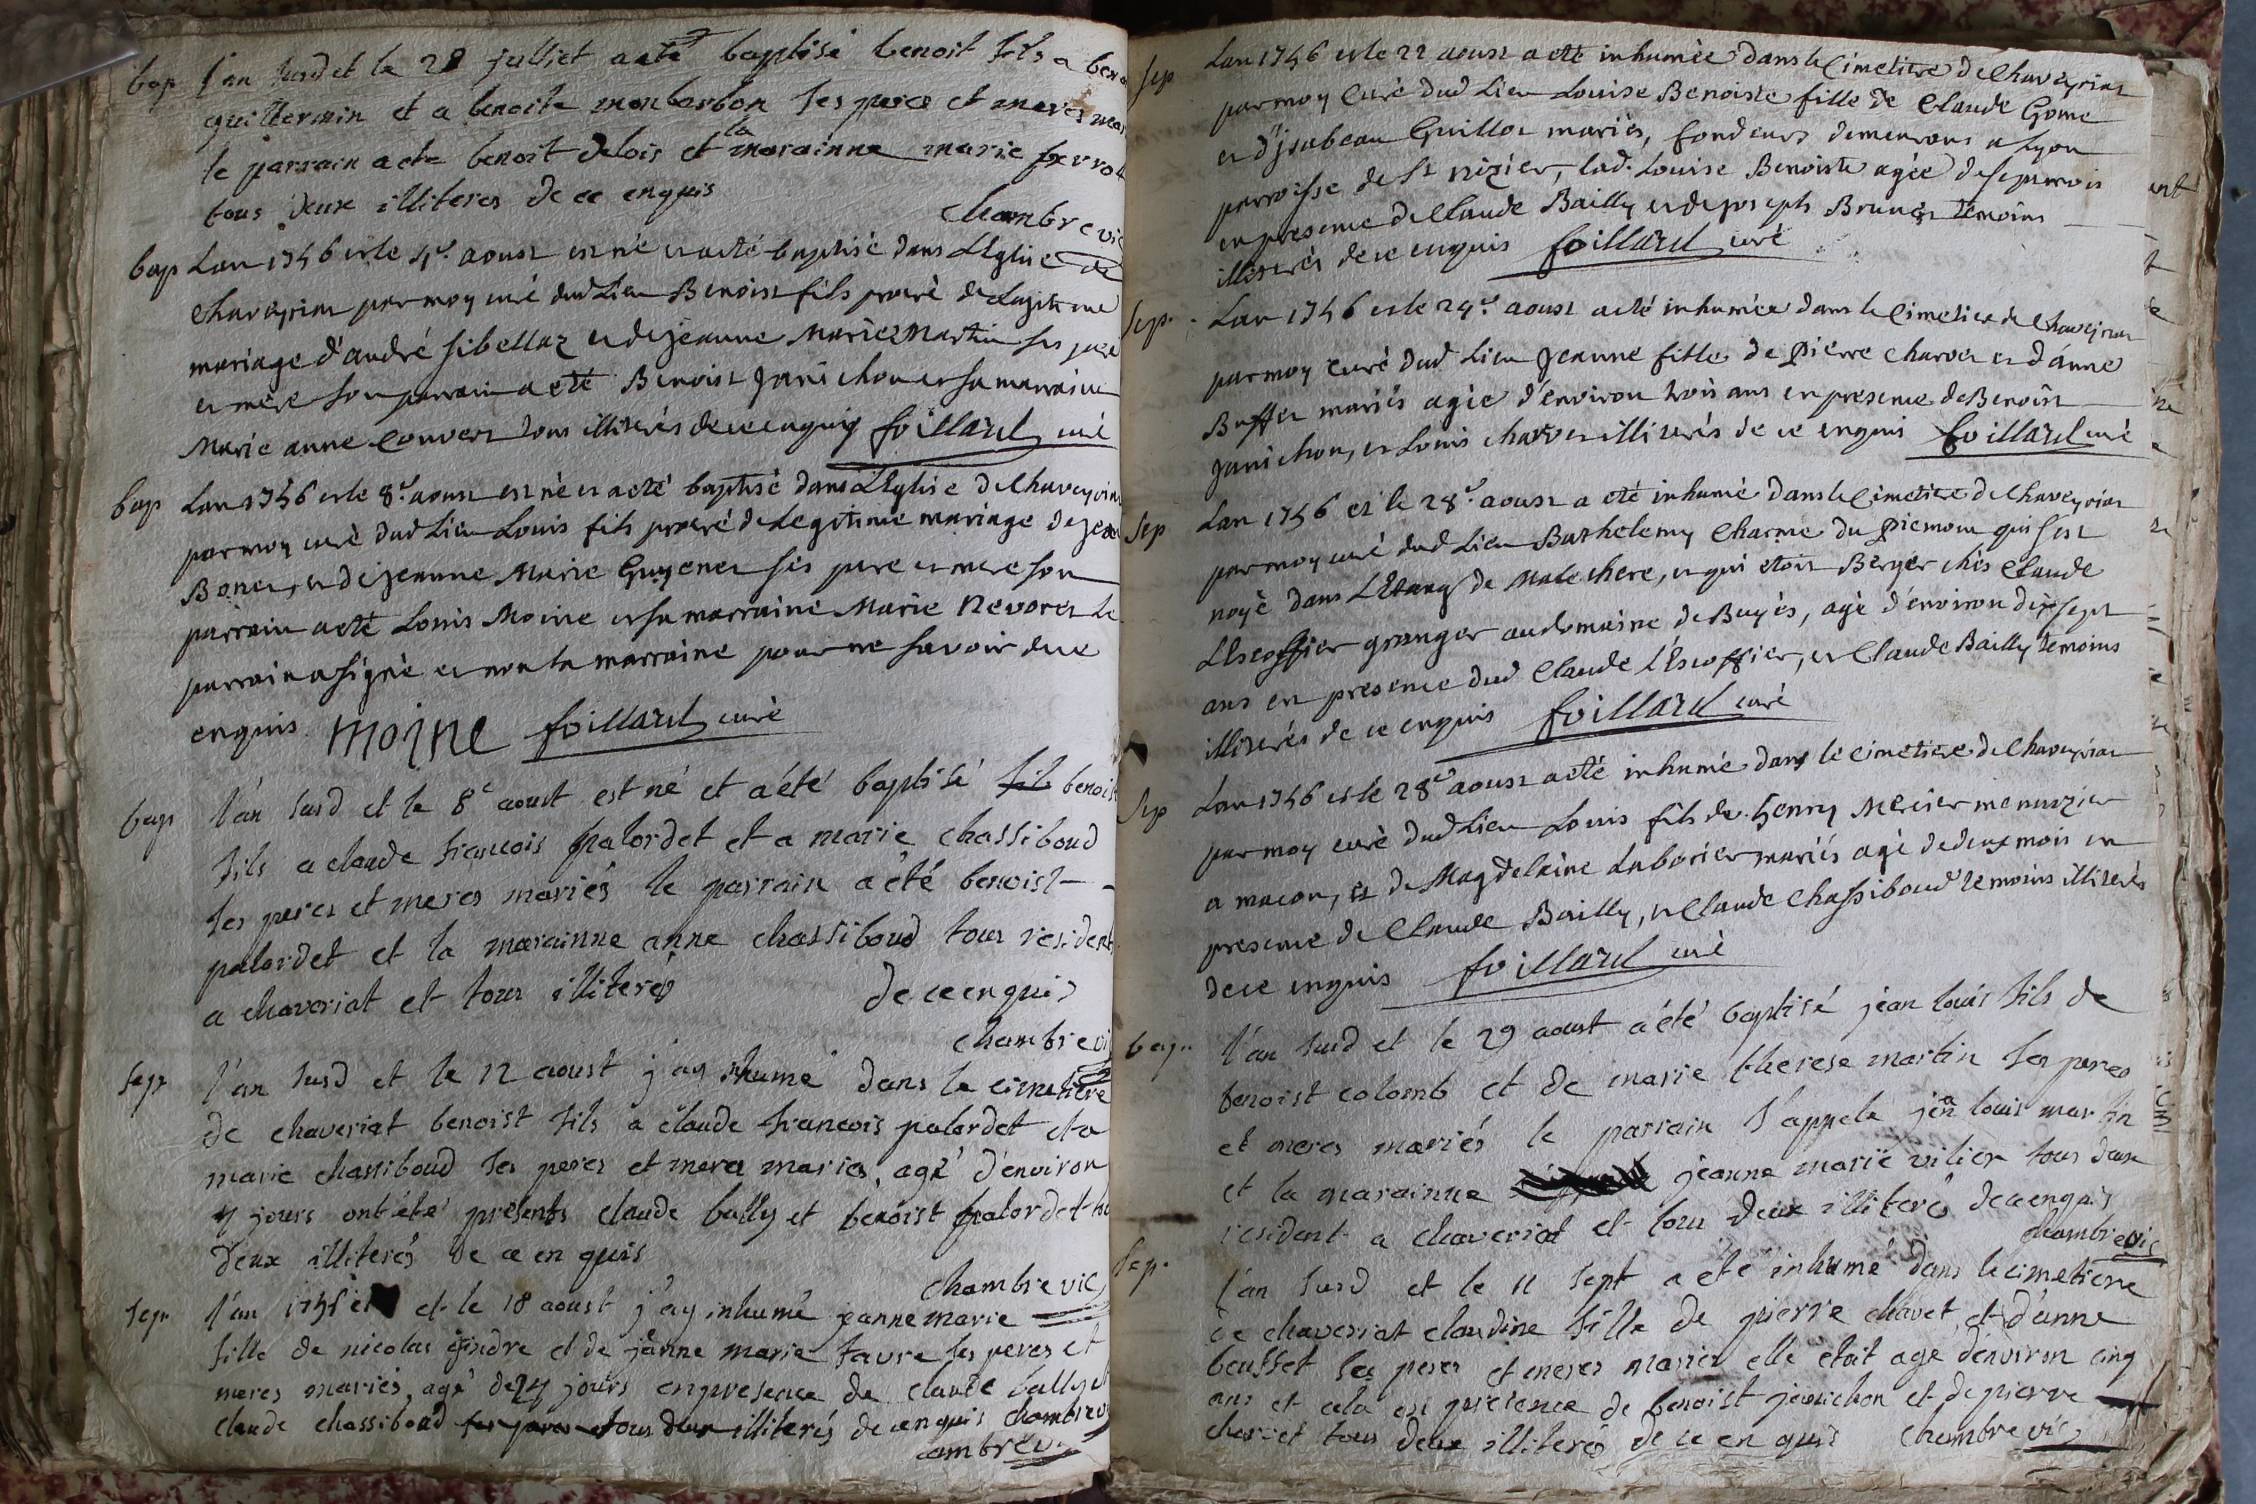 bap l'an susd et le 28 julliet a eté baptisé benoit fils a
guillermin et a benoite monbarbon ses pere et meres
le parrain a ete benoit delois et la marainne marie
tous deux illiteres de ce enquis
chambre vic
bap Lan 1746 et le 4e. aoust est né et a eté baptisé dans L'Eglise de
chaveyriat par moy curé dud Lieu Benoist fils procré de Legitime
mariage d'andré sibellaz et de jeanne Marie Martin ses pere
et mere son parrain a eté Benoist Janichon et sa marraine
Marie anne Convert tous illiterés de ce enquis foillard curé
bap Lan 1746 et le 8e. aoust est né et a eté baptisé dans L'Eglise de Chaveyriat
par moy curé dud Lieu Louis fils procré de Legitime mariage de jean
Bonet, et de jeanne Marie Guyenet ses pere et mere son
parrain a eté Louis Moine et sa marraine Marie Nevoret Le
parrain a signé et non la marraine pour ne savoir de ce
enquis. moine foillard curé
bap l'an susd et le 8e aoust est né et a été baptisé fils benoist
fils a claude francois palordet et a marie chassiboud
ses peres et meres mariés le parrain a été benoist
palordet et la marainne anne chassiboud tous résident
a chaveriat et tous illiterés de ce enquis
chambre vic
sep l'an susd et le 12 aoust j'ay inhumé dans le cimetiere
de chaveriat benoist fils a claude francois palordet et a
marie chassiboud ses peres et meres mariés, agé d'environ
4 jours ont été présents claude bally et benoist palordet
deux illiterés de ce en quis
chambre vic
sep. l'an et le 18 aoust j'ay inhumé jeanne marie
fille de nicolas gindre et de jeanne marie favre ses peres et
meres mariés, agé de jours en presence de claude bally et
claude chassiboud tous deux illiterés de ce enquis chambre vic
ambre vic
sep Lan 1746 et le 22 aoust a eté inhumée dans le Cimetiere de Chaveyriat
par moy Curé dud Lieu Louise Benoiste fille de Claude Gome
et d'jsabeau Guillot mariés, fondeurs demeurans a Lyon
parroisse de St nizier, lad. Louise Benoiste agée de sept mois
en presence de Claude Bailly et de joseph Brunet temoins
illiterés de ce enquis foillard curé
sep. Lan 1746 et le 24e. aoust a eté inhumée dans le Cimetiere de Chaveyriat
par moy Curé dud Lieu Jeanne fille de Pierre Charvet et d'anne
Buffet mariés agée d'environ trois ans en presence de Benoist
Janichon, et Louis charvet illiterés de ce enquis foillard curé
sep Lan 1746 et le 28e. aoust a eté inhumé dans le Cimetiere de Chaveyriat
par moy curé dud Lieu Barthelemy Charme du Piemont qui s'est
noyé dans L'Etang de Malechere, et qui etoit Berger chés Claude
L'Escoffier granger au domaine de Buyés, agé d'environ dix sept
ans en presence dud Claude L'Escoffier, et Claude Bailly temoins
illiterés de ce enquis foillard curé
sep Lan 1746 et le 28e aoust a eté inhumé dans le cimetiere de Chaveyriat
par moy curé dud Lieu Louis fils de henry Mecier menuizier
a macon, et de Magdelaine Laborier mariés agé de deux mois en
presence de Claude Bailly, et Claude Chassiboud temoins illiterés
de ce enquis foillard curé
bap. l'an susd et le 29 aoust a été baptisé jean louis fils de
benoist colomb et de marie therese martin ses peres
et meres mariés le parrain s'appele jean louis martin
et la marainne jeanne marie vilier tous deux
resident a chaveriat et tous deux illiterés de ce enquis
chambre vic
sep. l'an susd et le 11 sept a été inhumé dans le cimetiere
de chaveriat claudine fille de pierre chavet et d'anne
beuffet ses peres et meres mariés elle etoit agé d'environ cinq
ans et cela en presence de benoist jeanichon et de pierre
charvet tous deux illiterés de ce en quis chambre vic